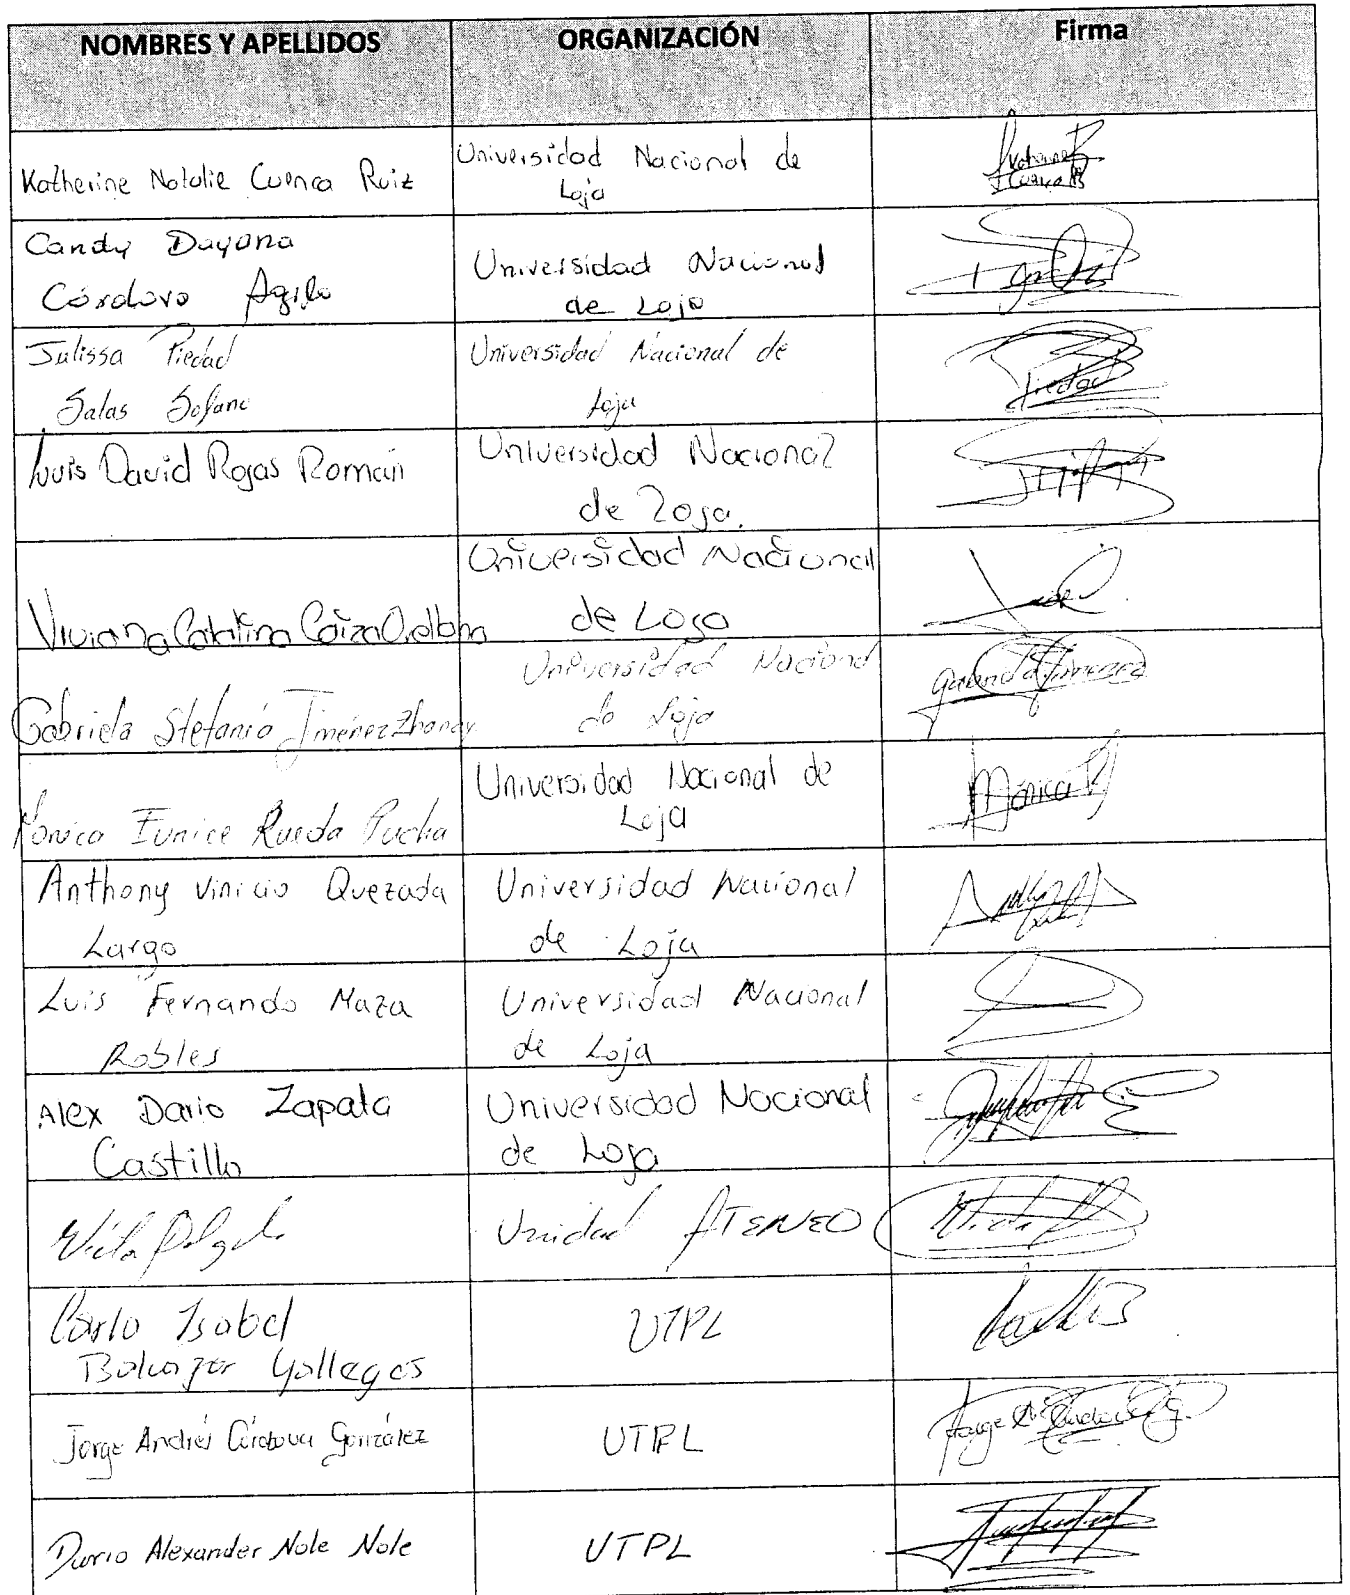 NOMBRES Y APELLIDOS ORGANIZACIÓN Firma
Katherine Natalie Cuenca Ruiz
Universidad Nacional de
Loja
Candy Dayana
Córdova Agila
Universidad Nacional
de Loja
Julissa Piedad
Salas Solano
Universidad Nacional de
Loja
Piedad
Luis David Rojas Román
Universidad Nacional
de Loja.
Viviana Catalina Caiza Orellana
Universidad Nacional
de Loja
Gabriela Stefania Jiménez Zhanay
Universidad Nacional
de Loja
Gabriela Jimenez
Monica Eunice Rueda Pucha
Universidad Nacional de
Loja
Mónica
Anthony Vinicio Quezada
Largo
Universidad Nacional
de Loja
Luis Fernando Maza
Robles
Universidad Nacional
de Loja
Alex Dario Zapata
Castillo
Universidad Nacional
de Loja
Unidad ATENEO
Carla Isabel
Balcazar Gallegos
UTPL
Jorge Andrés Córdova González
UTPL
Dario Alexander Nole Nole
UTPL